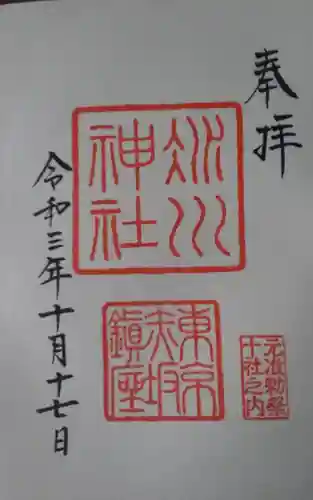 奉拝
氷川
神社
東京
赤坂
鎮座
元准勅祭
十社之内
令和三年十月十七日